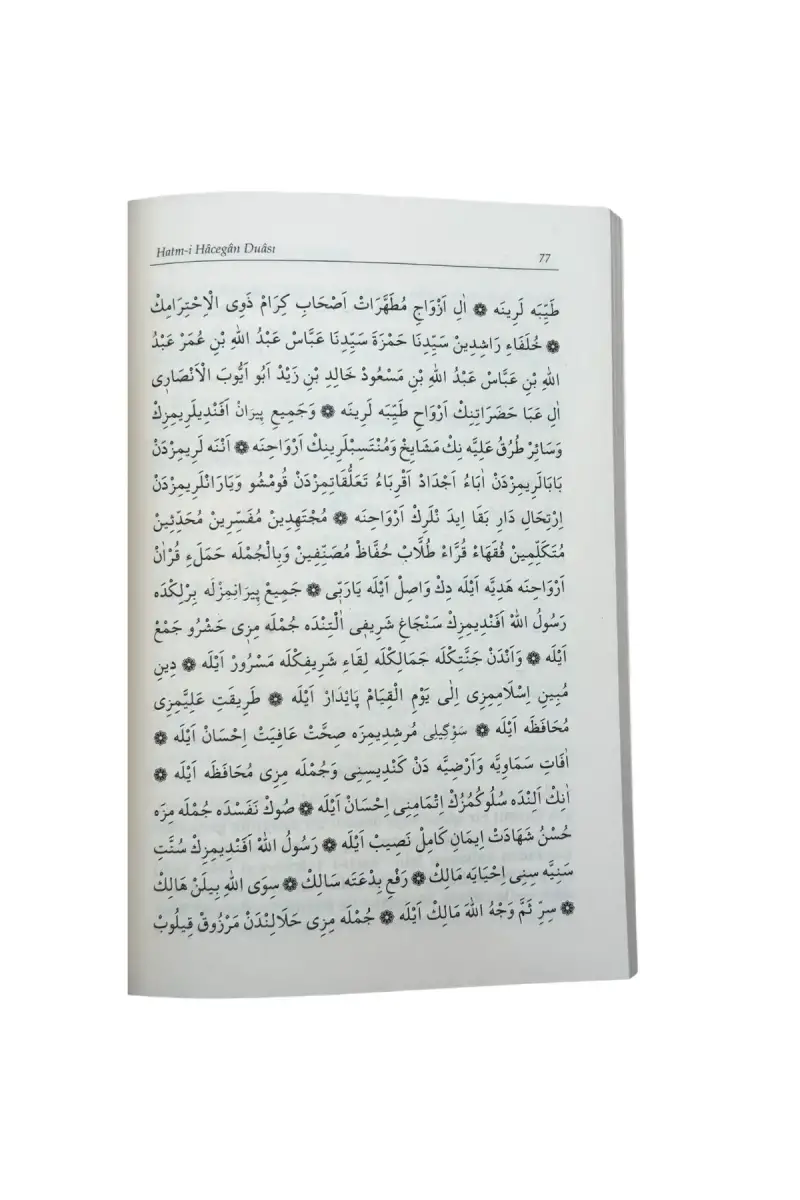 Hatm-i Hâcegân Duâsı
77
طَيِّبَه لَرِينَه ❁ اٰلِ اَزْوَاجِ مُطَهَّرَاتْ اَصْحَابِ كِرَامْ ذَوِى الْاِحْتِرَامِكْ
❁ خُلَفَاءِ رَاشِدِينْ سَيِّدِنَا حَمْزَةَ سَيِّدِنَا عَبَّاسْ عَبْدُ اللهِ بْنِ عُمَرْ عَبْدُ
اللهِ بْنِ عَبَّاسْ عَبْدُ اللهِ بْنِ مَسْعُودْ خَالِدِ بْنِ زَيْدْ اَبُو اَيُّوبَ الْاَنْصَارِى
اٰلِ عَبَا حَضَرَاتِنِكْ اَرْوَاحِ طَيِّبَه لَرِينَه ❁ وَجَمِيعِ پِيرَانْ اَفَنْدِيلَرِيمِزِكْ
وَسَائِرْ طُرُقِ عَلِيَّه نِكْ مَشَايِخْ وَمُنْتَسِبْلَرِينِكْ اَرْوَاحِنَه ❁ اَنْنَه لَرِيمِزْدَنْ
بَابَالَرِيمِزْدَنْ اٰبَاءْ اَجْدَادْ اَقْرِبَاءْ تَعَلُّقَاتِمِزْدَنْ قُومْشُو وَيَارَانْلَرِيمِزْدَنْ
اِرْتِحَالِ دَارِ بَقَا اِيدَ نْلَرِكْ اَرْوَاحِنَه ❁ مُجْتَهِدِينْ مُفَسِّرِينْ مُحَدِّثِينْ
مُتَكَلِّمِينْ فُقَهَاءْ قُرَّاءْ طُلَّابْ حُفَّاظْ مُصَنِّفِينْ وَبِالْجُمْلَه حَمَلَءِ قُرْاٰنْ
اَرْوَاحِنَه هَدِيَّه اَيْلَه دِكْ وَاصِلْ اَيْلَه يَارَبِّى ❁ جَمِيعْ پِيرَانِمِزْلَه بِرْلِكْدَه
رَسُولُ اللهْ اَفَنْدِيمِزِكْ سَنْجَاغِ شَرِيفِى اٰلْتِنْدَه جُمْلَه مِزِى حَشْرُو جَمْعْ
اَيْلَه ❁ وَاٰنْدَنْ جَنَّتِكْلَه جَمَالِكْلَه لِقَاءِ شَرِيفِكْلَه مَسْرُورْ اَيْلَه ❁ دِينِ
مُبِينِ اِسْلَامِمِزِى اِلٰى يَوْمِ الْقِيَامْ پَايْدَارْ اَيْلَه ❁ طَرِيقَتِ عَلِيَّمِزِى
مُحَافَظَه اَيْلَه ❁ سَوْگِيلِى مُرْشِدِيمِزَه صِحَّتْ عَافِيَتْ اِحْسَانْ اَيْلَه ❁
اٰفَاتِ سَمَاوِيَّه وَاَرْضِيَّه دَنْ كَنْدِيسِنِى وَجُمْلَه مِزِى مُحَافَظَه اَيْلَه ❁
اٰنِكْ اَلِنْدَه سُلُوكُمُزُكْ اِتْمَامِنِى اِحْسَانْ اَيْلَه ❁ صُوكْ نَفَسْدَه جُمْلَه مِزَه
حُسْنُ شَهَادَتْ اِيمَانِ كَامِلْ نَصِيبْ اَيْلَه ❁ رَسُولُ اللهْ اَفَنْدِيمِزِكْ سُنَّتِ
سَنِيَّه سِنِى اِحْيَايَه مَالِكْ ❁ رَفْعِ بِدْعَتَه سَالِكْ ❁ سِوَى اللهِ بِيلَنْ هَالِكْ
❁ سِرِّ ثَمَّ وَجْهُ اللهَ مَالِكْ اَيْلَه ❁ جُمْلَه مِزِى حَلَالِنْدَنْ مَرْزُوقْ قِيلُوبْ